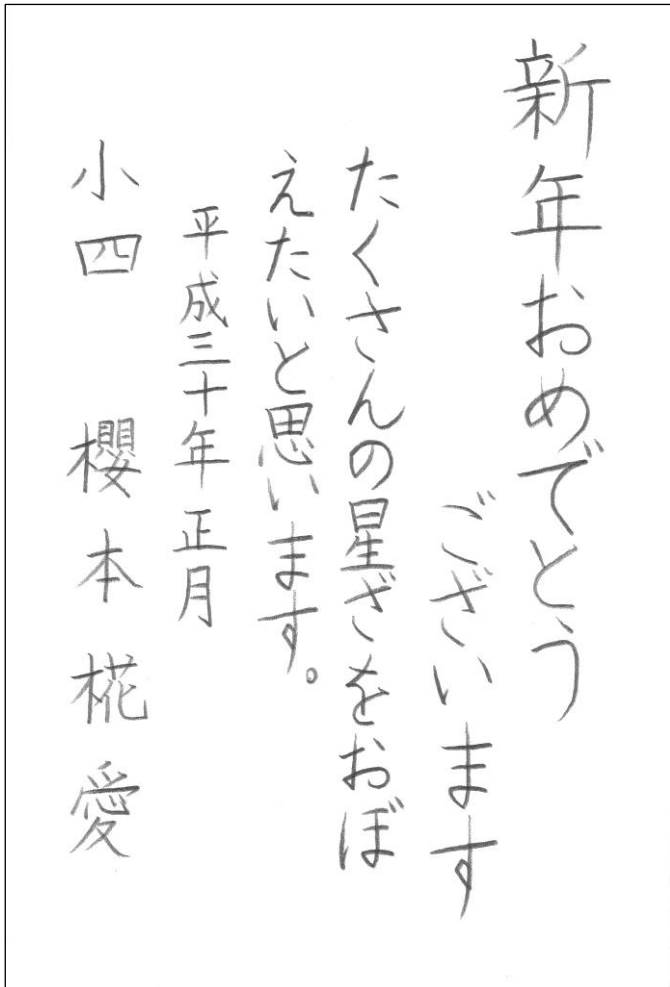 新年おめでとう
ございます
たくさんの星ざをおぼ
えたいと思います。
平成三十年 正月
小四 櫻本椛愛